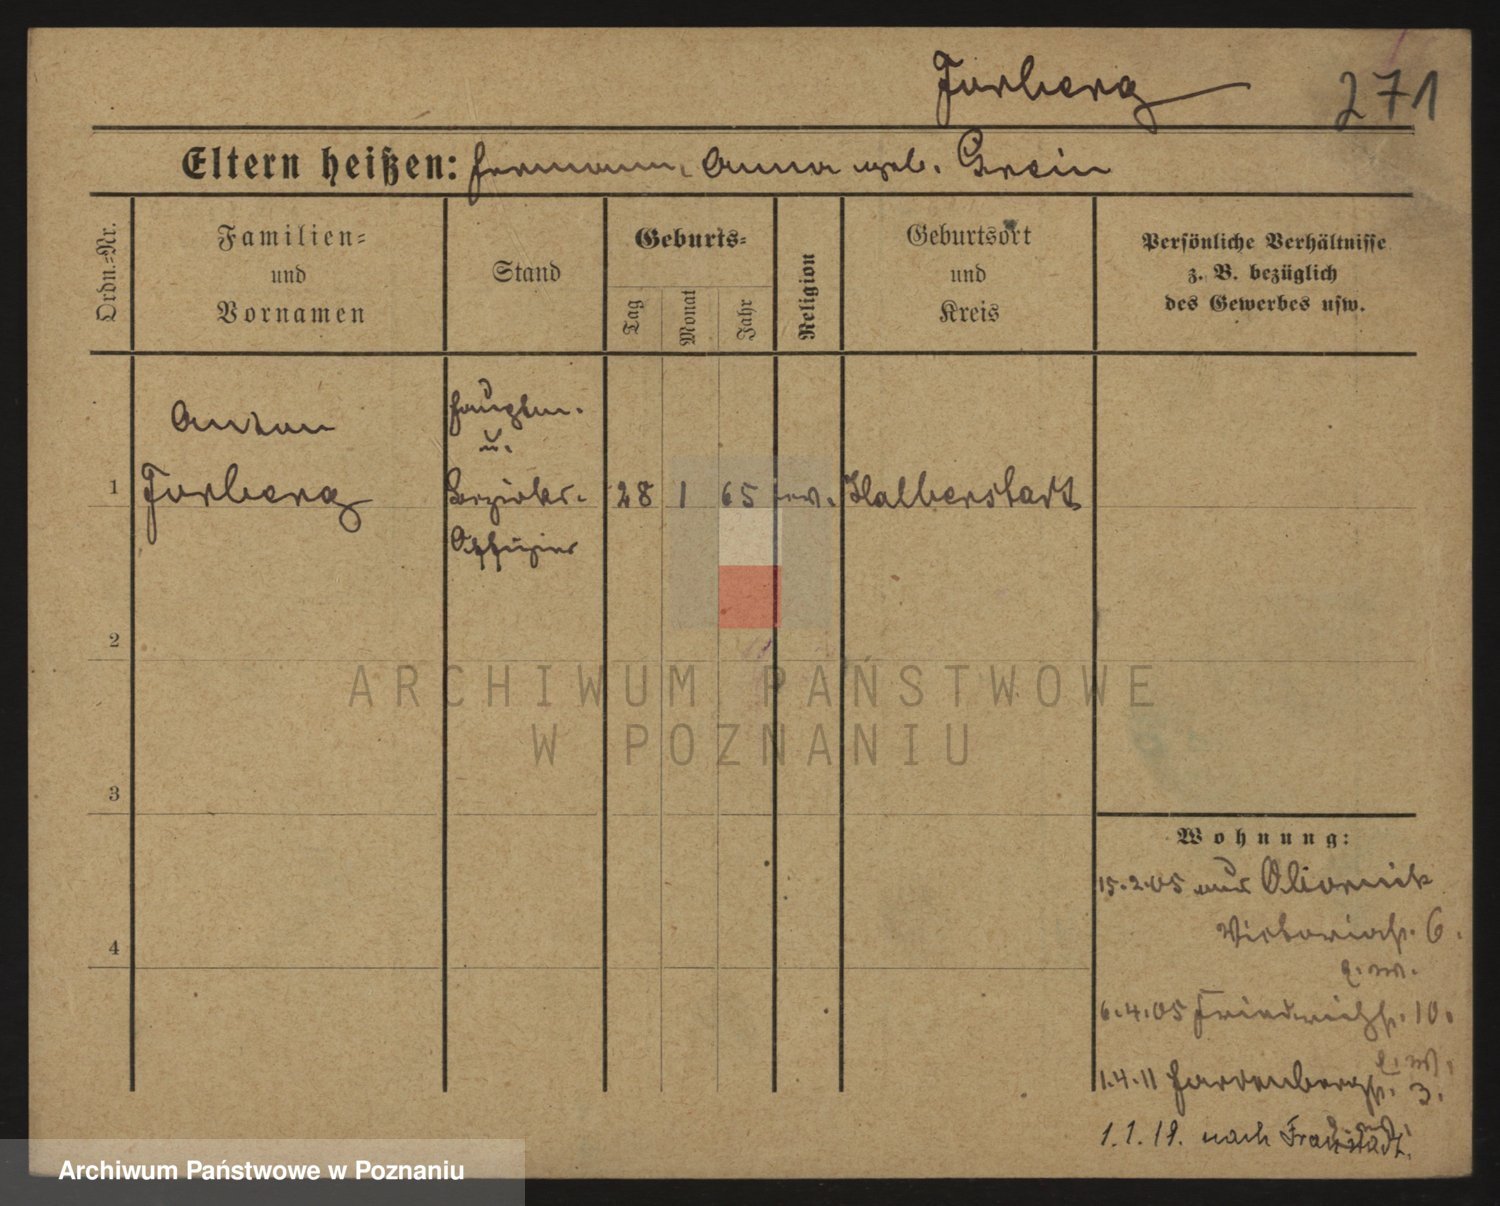 Forberg
271
Eltern heißen: Hermann, Anna geb. Grein
Ordn.=Nr.
Familien=
und
Vornamen
Stand
Geburts=
Tag
Monat
Jahr
Religion
Geburtsort
und
Kreis
Persönliche Verhältnisse
z. B. bezüglich
des Gewerbes usw.
Anton
Hauptm.
u.
1 Forberg Bezirks- 28 1 65 ev. Halberstadt
Offizier
2
ARCHIWUM PAŃSTWOWE
W POZNANIU
3
Wohnung:
15.2.05 aus Obornik
Victoriastr. 6.
4
6.4.05 Friedrichstr. 10.
1.4.11 Hardenbergstr. 3.
1.1.19. nach Fraustadt.
Archiwum Państwowe w Poznaniu